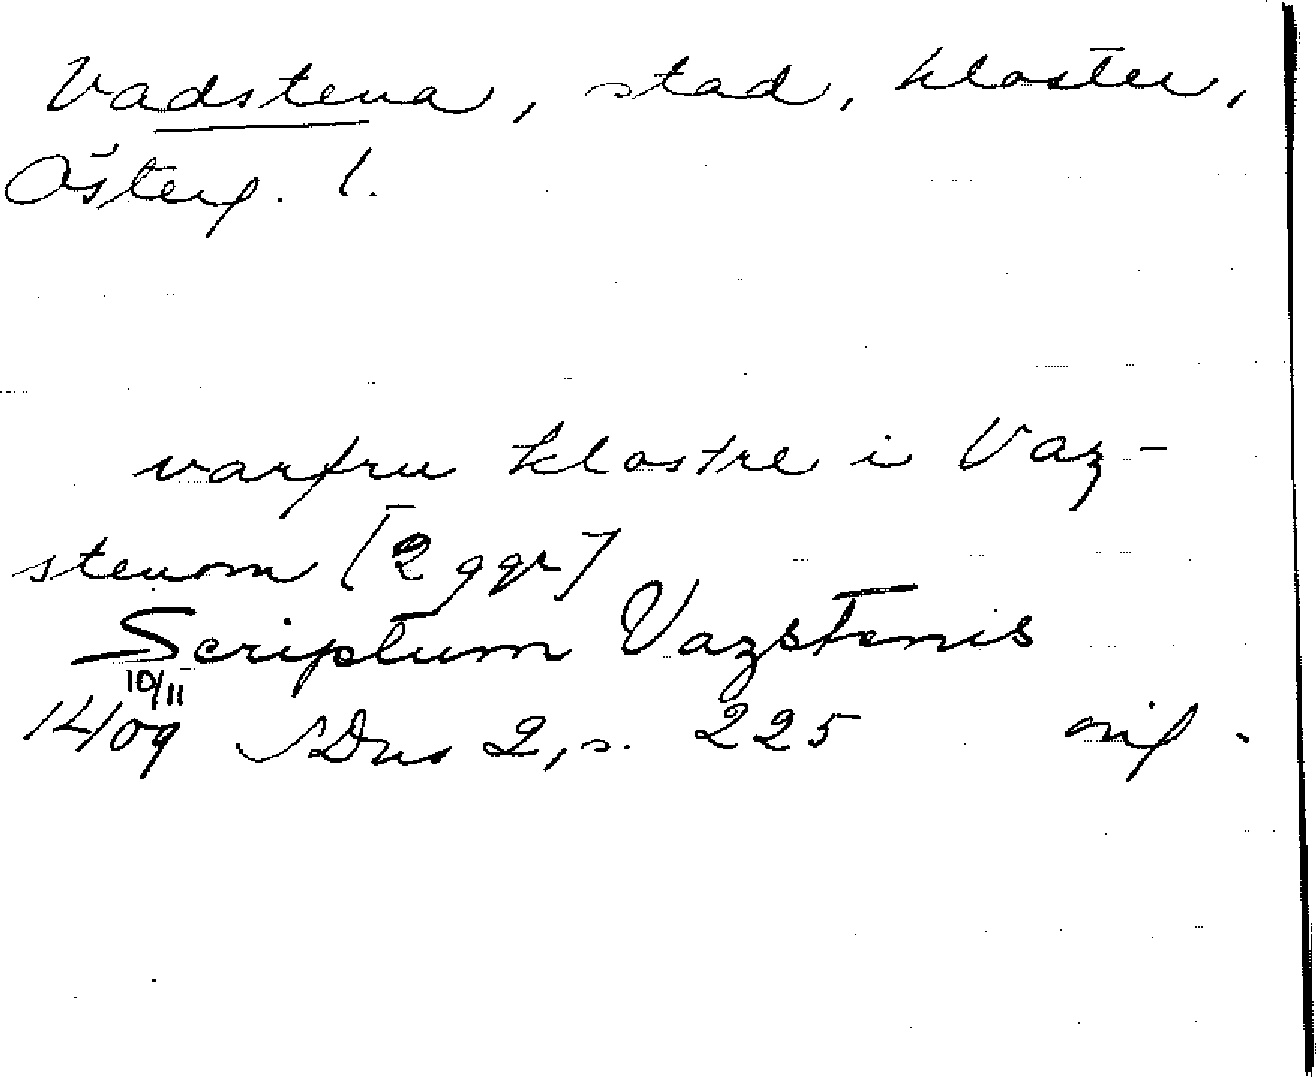 Vadstena, stad, kloster,
Österg. l.
varfru klostre i Vaz-
stenom [2 ggr]
Scriptum Vazstenis
10/11
1409 SDns 2, s. 225 orig.